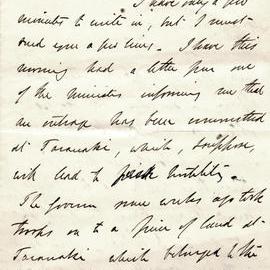 I have only a few
minutes to write in, but I must
send you a few lines. I have this
morning had a letter from one
of the Ministers informing me that
an outrage has been committed
at Taranaki, which, I suppose,
will lead to fresh hostility.
The Governor some weeks ago took
troops on to a piece of land at
Taranaki which belonged to the